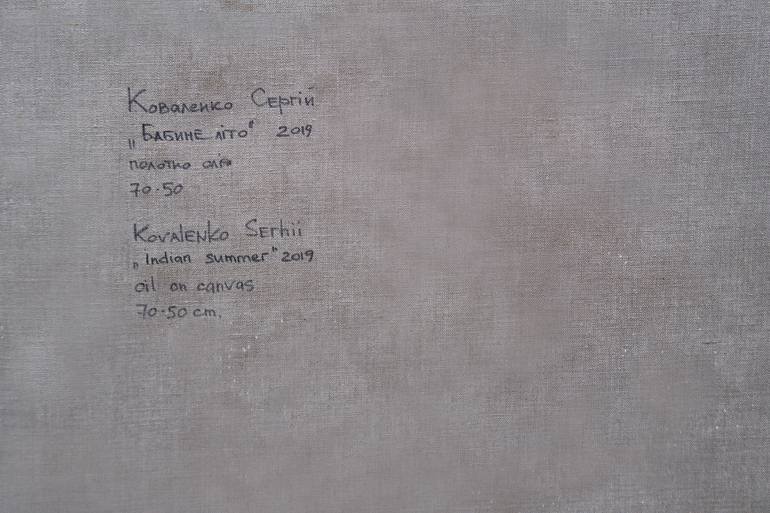 Коваленко Сергій
„Бабине літо" 2019
полотно олія
70·50
Kovalenko Serhii
„Indian summer" 2019
oil on canvas
70·50 cm.